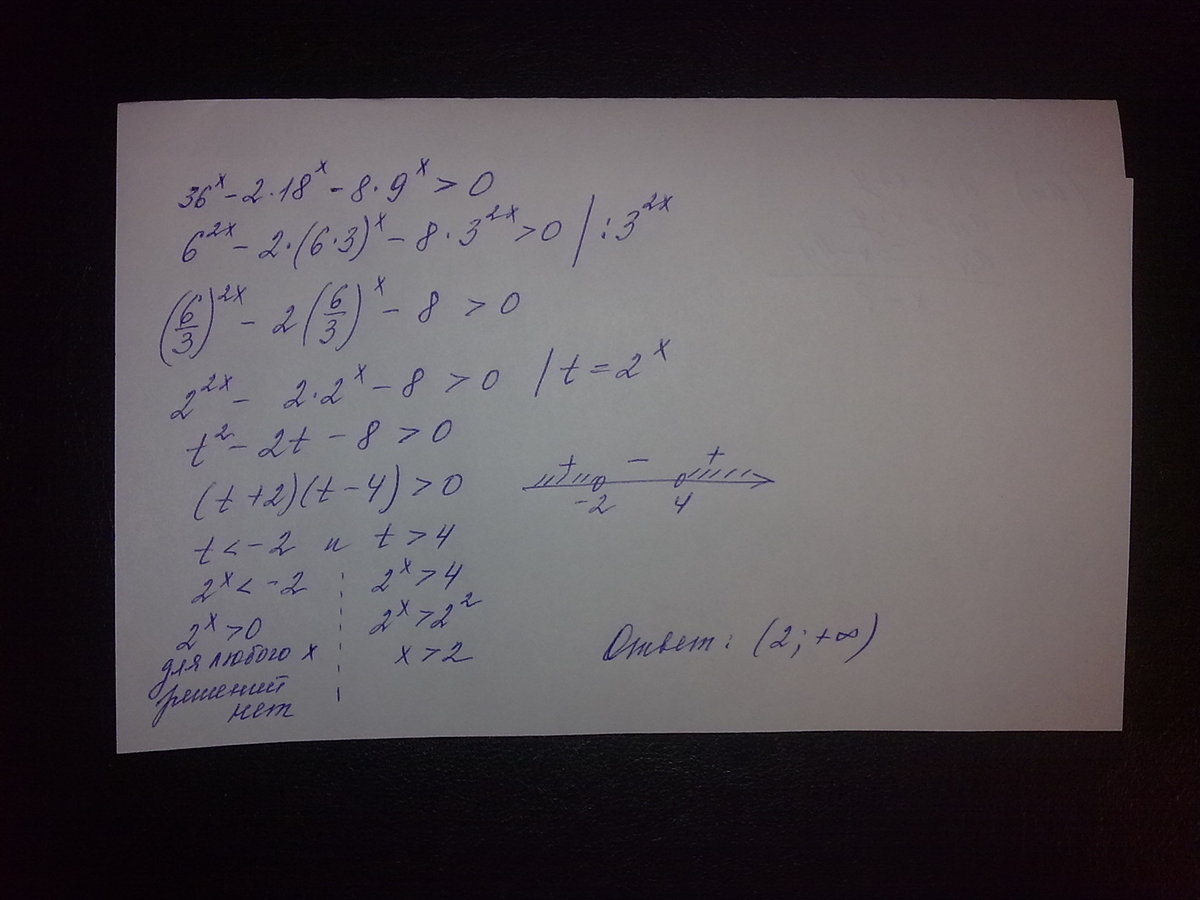 36^x - 2·18^x - 8·9^x > 0
6^{2x} - 2·(6·3)^x - 8·3^{2x} > 0 | : 3^{2x}
(6/3)^{2x} - 2(6/3)^x - 8 > 0
2^{2x} - 2·2^x - 8 > 0 | t = 2^x
t^2 - 2t - 8 > 0
(t+2)(t-4) > 0
+ - +
-2 4
t < -2 и t > 4
2^x < -2
2^x > 0
для любого x
решений
нет
2^x > 4
2^x > 2^2
x > 2
Ответ: (2; +∞)